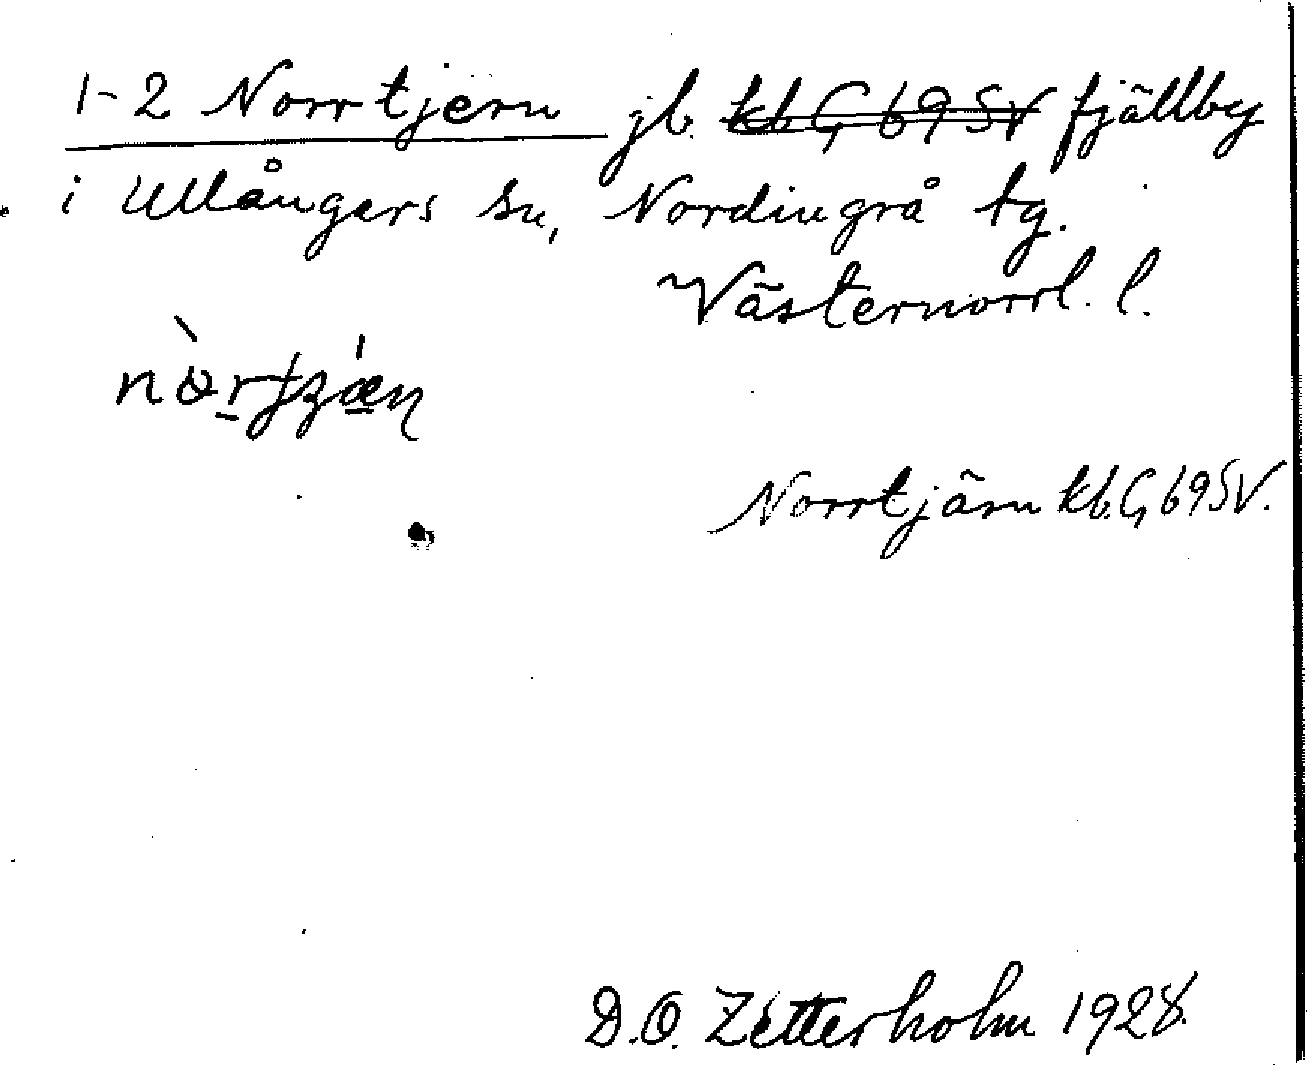 1-2 Norrtjern jb. kb G 69 SV fjällby
i Ullångers sn, Nordingrå tg.
Västernorrl. l.
Norrtjärn kb. G 69 SV.
D.O. Zetterholm 1928.